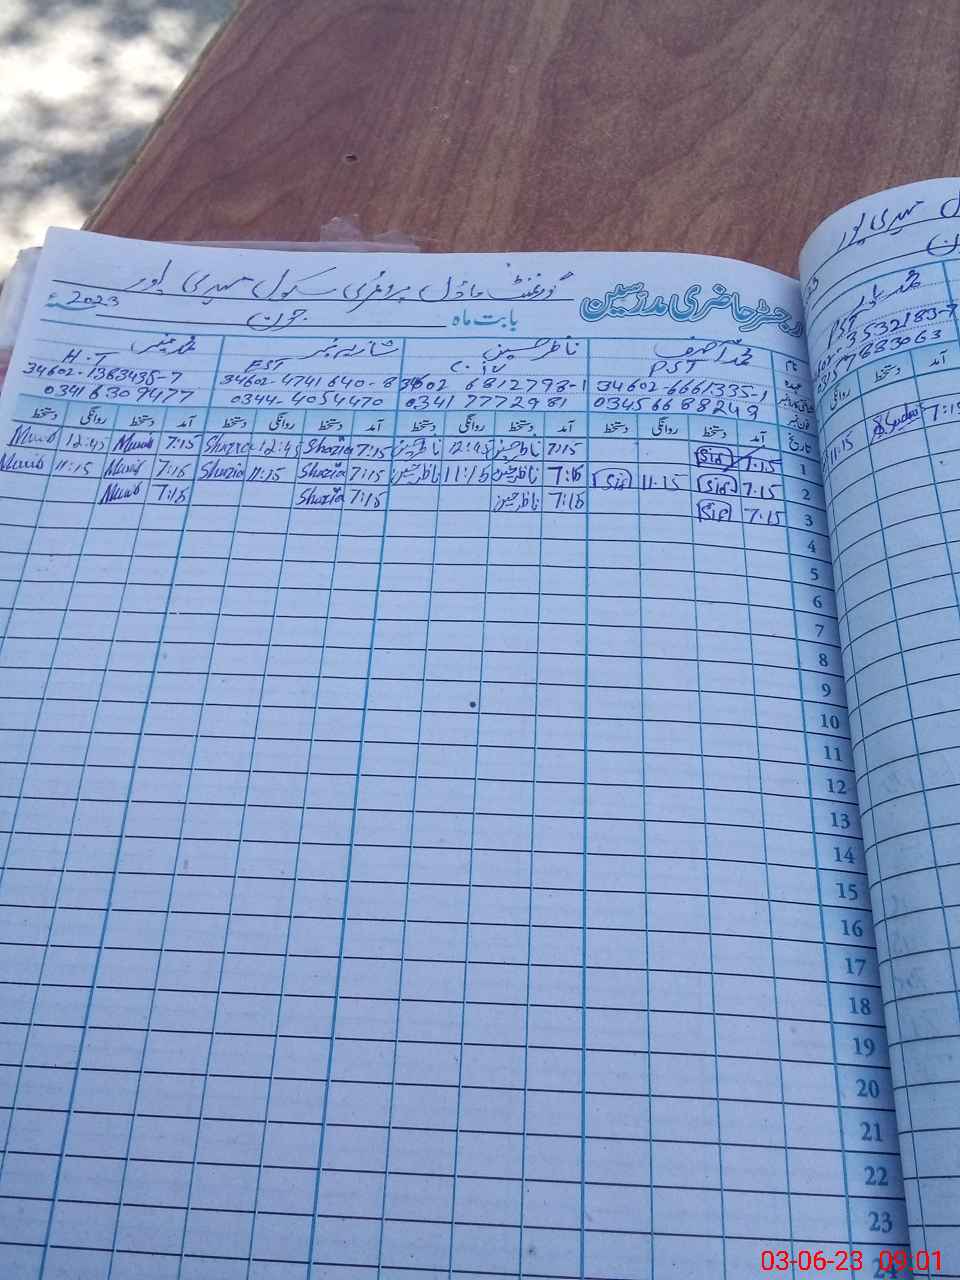 گورنمنٹ ماڈل پرائمری سکول
رجسٹر حاضری مدرسین بابت ماہ جون 2023ء
نام محمد آصف ناظر حسین شازیہ منیر محمد منیر
عہدہ PST C.IV EST H.T
34602-6661335-1 34602 6812798-1 34602-4741640-8 34602-1383435-7
03456688249 03417772981 0344-4054470 03416309477
تاریخ آمد دستخط روانگی دستخط آمد دستخط روانگی دستخط آمد دستخط روانگی دستخط آمد دستخط روانگی دستخط
1 7:15 Sid 7:15 ناظر حسین 12:45 ناظر حسین 7:15 Shazia 12:45 Shazia 7:15 Munib 12:45 Munib
2 7:15 Sid 11:15 Sid 7:15 ناظر حسین 11:15 ناظر حسین 7:15 Shazia 11:15 Shazia 7:15 Munib 11:15 Munib
3 7:15 Sid 7:15 ناظر حسین 7:15 Shazia 7:15 Munib
4
5
6
7
8
9
10
11
12
13
14
15
16
17
18
19
20
21
22
23
PST
3532183-7
7883063
آمد دستخط روانگی
7:15
11:15
03-06-23 09:01